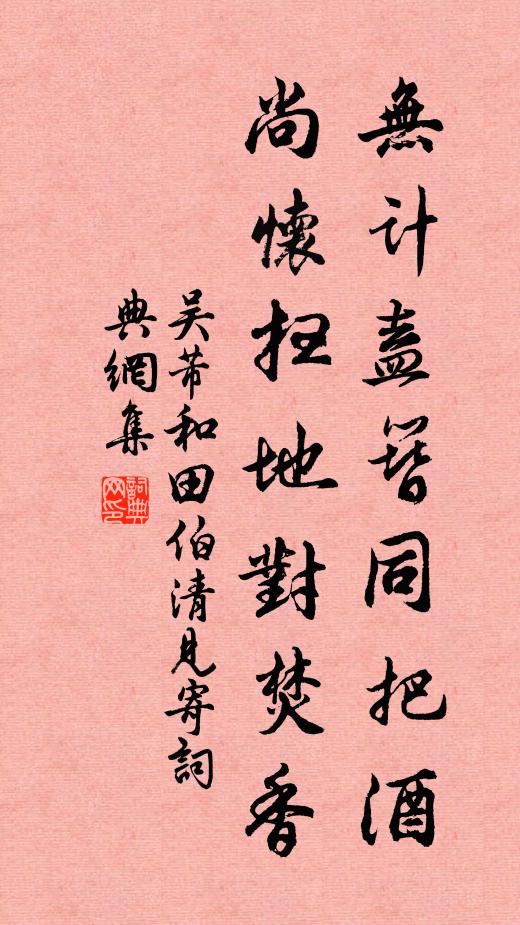 無計盍簪同把酒
尚懷扫地對焚香
吴芾和田伯清見寄詞
典網集
詞典网印